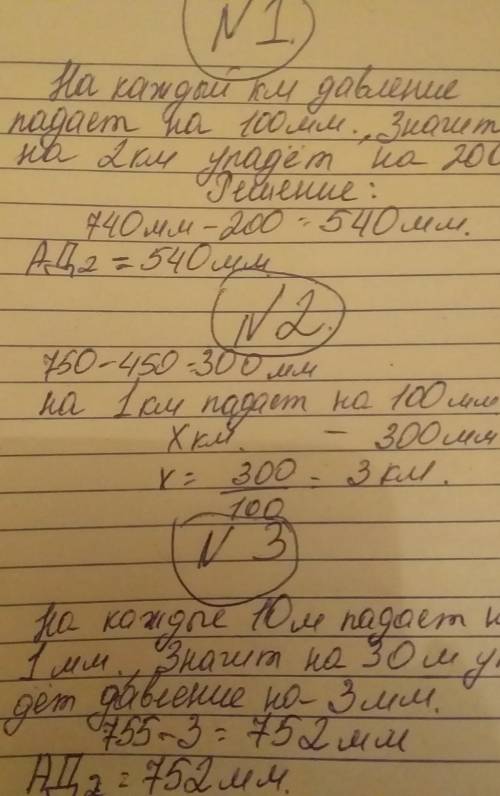 N 1.
На каждый км давление
падает на 100мм., Значит
на 2км упадёт на 200
Решение:
740мм-200=540мм.
АД₂=540мм
N 2.
750-450=300мм
на 1км падает на 100мм
Хкм. - 300мм
х = 300/100 = 3км.
N 3
На каждые 10м падает н
1мм., Значит на 30м уп
дёт давление на 3мм.
755-3=752мм
АД₂=752мм.